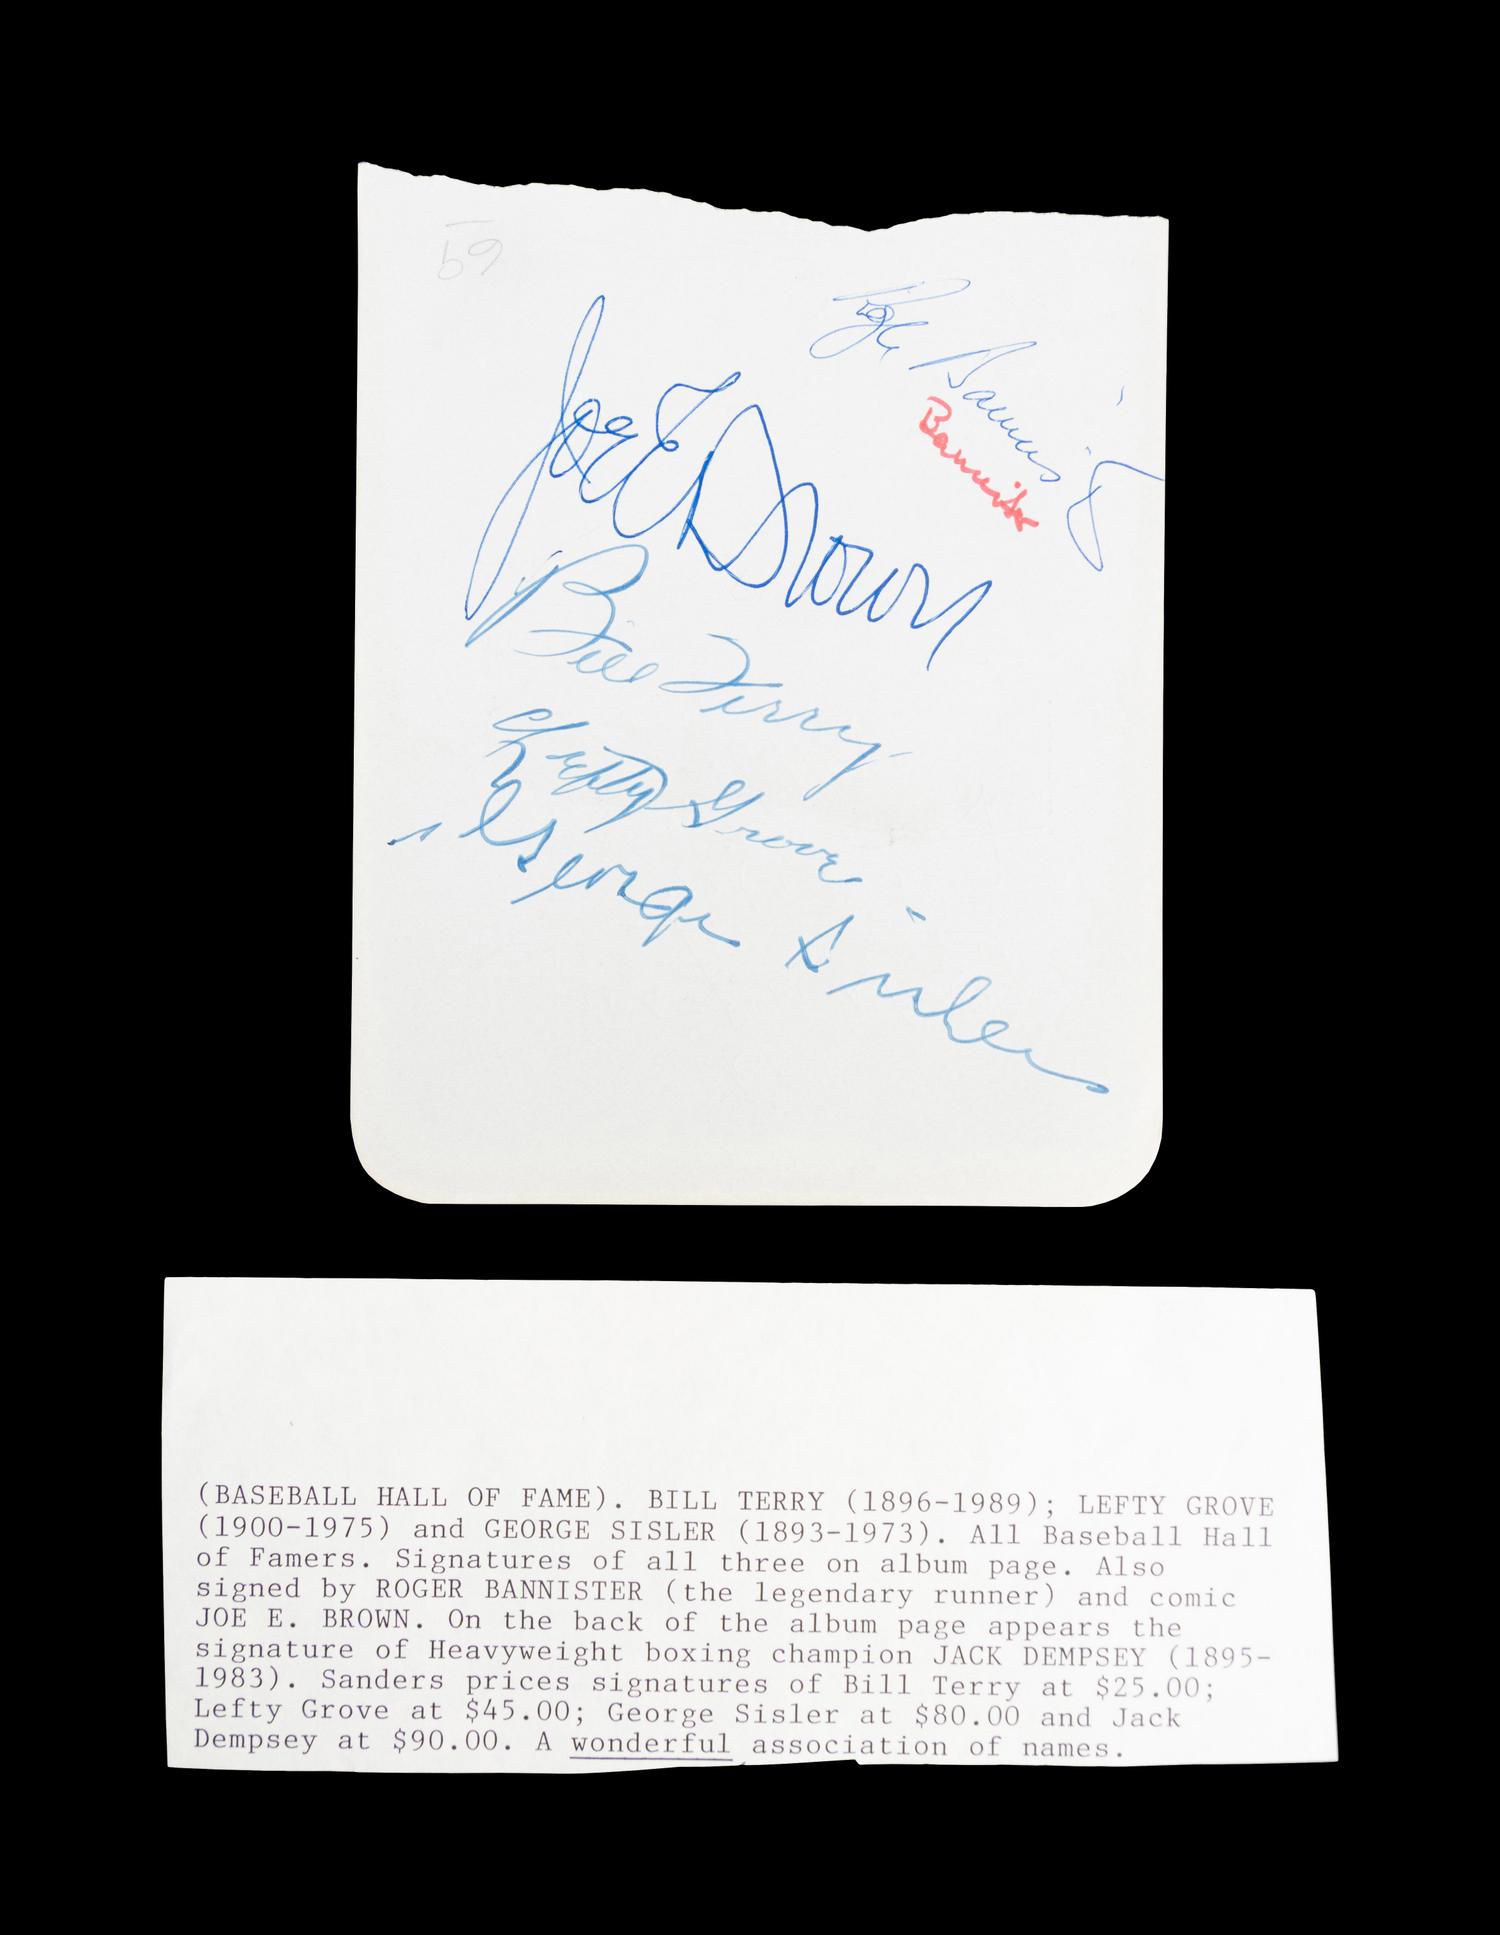 59
Roger Bannister
Bannister
Joe E Brown
Bill Terry
Lefty Grove
George Sisler
(BASEBALL HALL OF FAME). BILL TERRY (1896-1989); LEFTY GROVE
(1900-1975) and GEORGE SISLER (1893-1973). All Baseball Hall
of Famers. Signatures of all three on album page. Also
signed by ROGER BANNISTER (the legendary runner) and comic
JOE E. BROWN. On the back of the album page appears the
signature of Heavyweight boxing champion JACK DEMPSEY (1895-
1983). Sanders prices signatures of Bill Terry at $25.00;
Lefty Grove at $45.00; George Sisler at $80.00 and Jack
Dempsey at $90.00. A wonderful association of names.